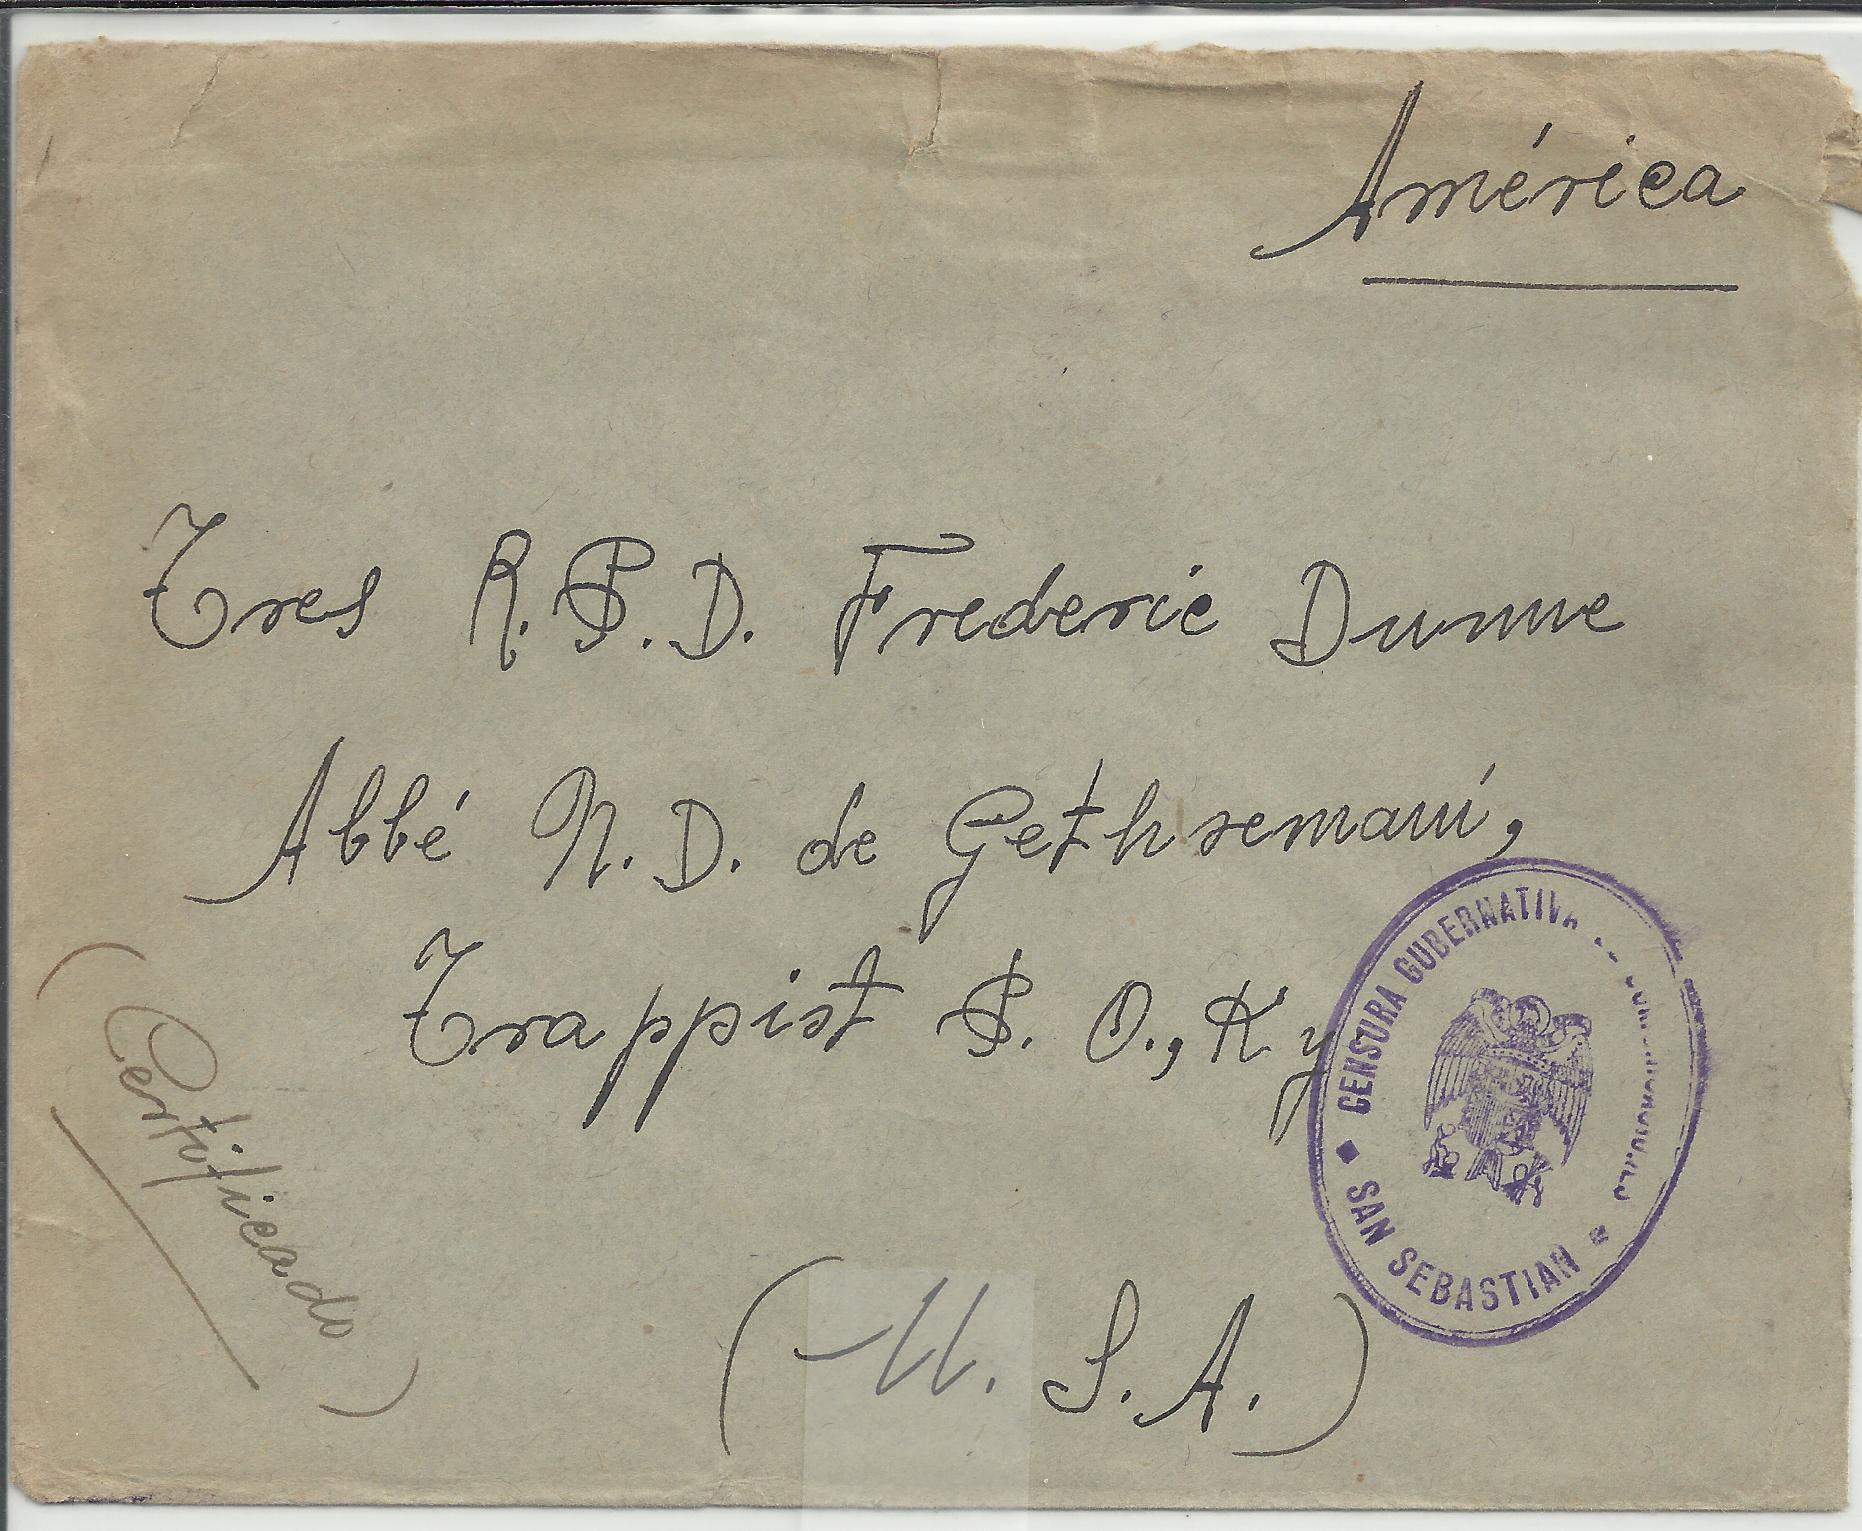 América
Tres R.P.D. Frederic Dunne
Abbé N.D. de Gethsemaní,
Trappist P.O., Ky
(Certificado)
(U.S.A.)
CENSURA GUBERNATIVA
SAN SEBASTIAN